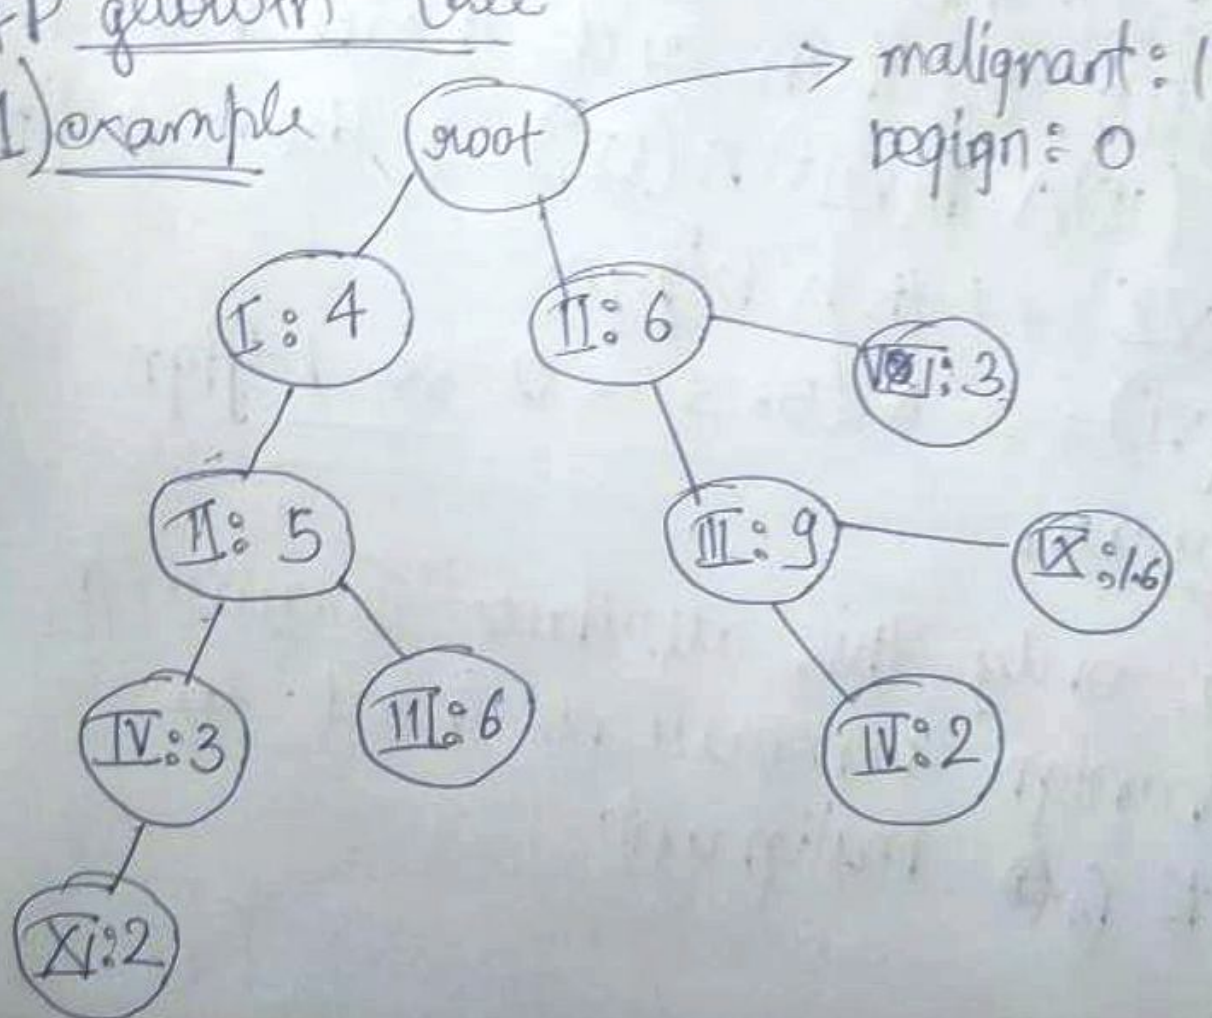 growth tree
1) example
root
malignant: 1
regign: 0
I: 4
II: 6
: 3
II: 5
III: 9
IX: 1.6
IV: 3
III: 6
IV: 2
XI: 2